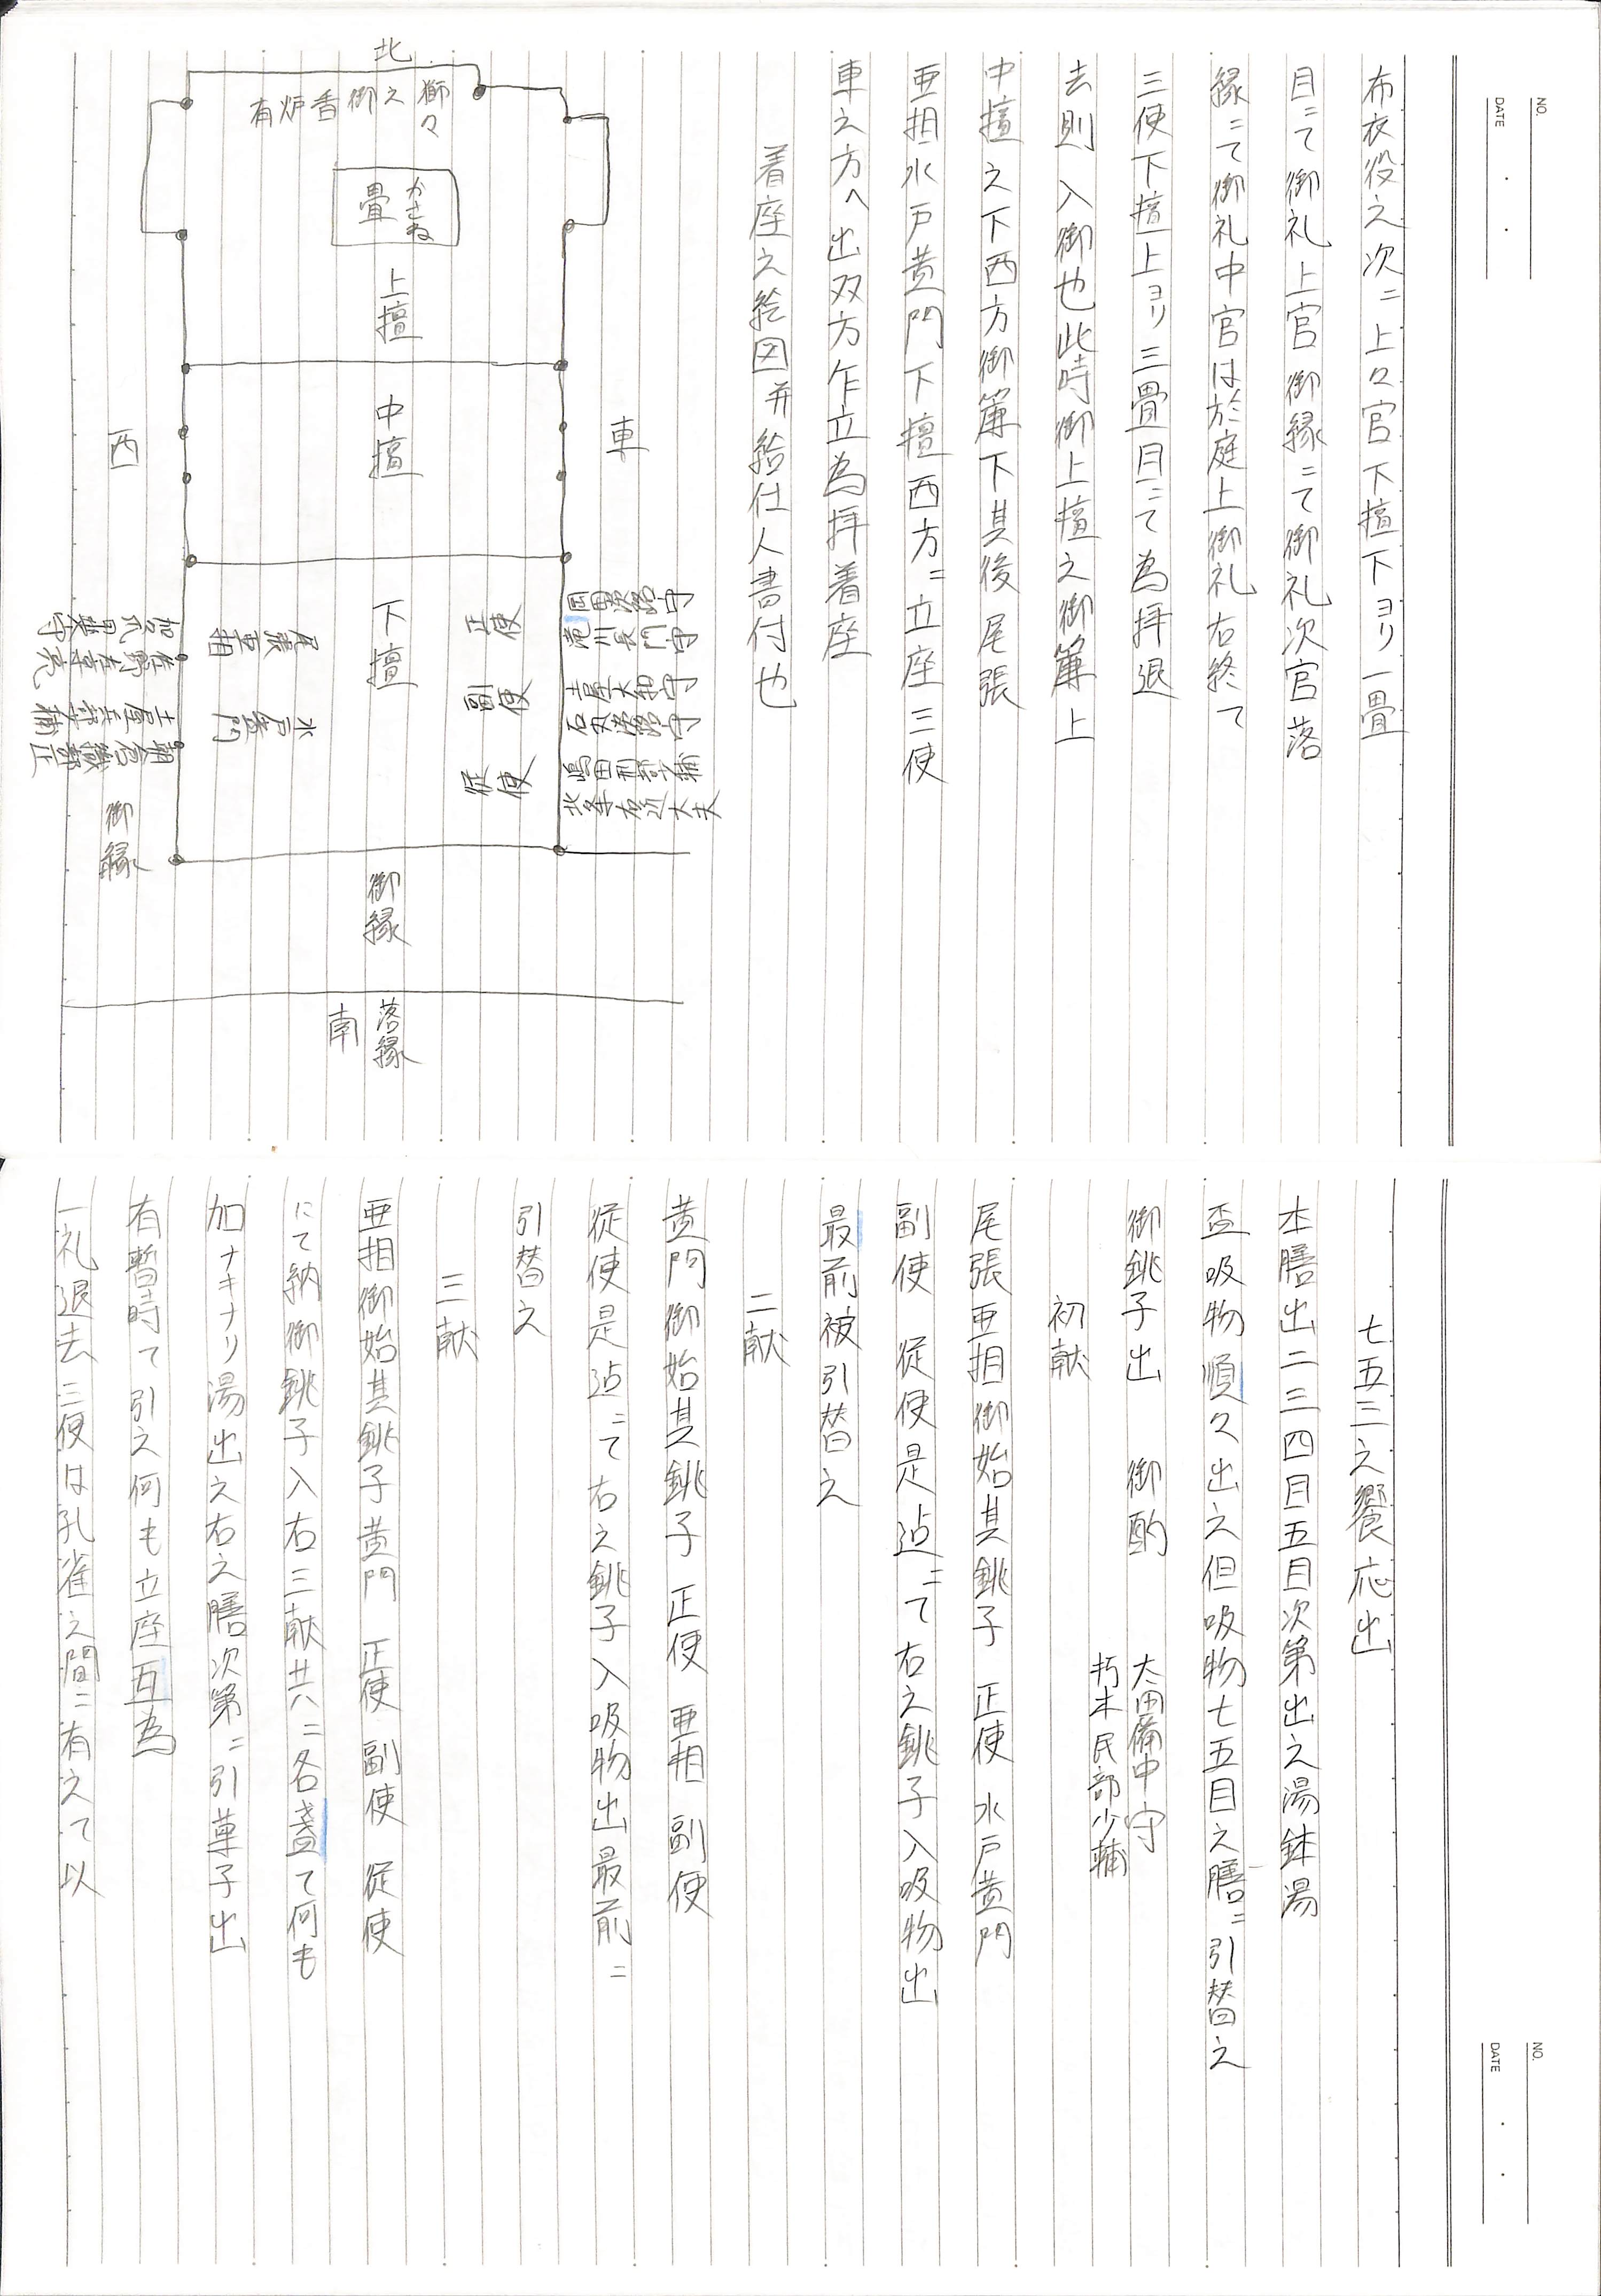 NO.
DATE
布衣役之次ニ上々官下擅下ヨリ一畳
目ニて御礼上官御縁ニて御礼次官落
縁ニて御礼中官は於庭上御礼右終て
三使下擅上ヨリ三畳目ニて為拝退
去則入御也此時御上擅之御簾上
中擅之下西方御簾下其後尾張
亜相水戸黄門下擅西方ニ立座三使
車之方へ出双方乍立為拝着座
着座之絵図并給仕人書付也
北
獅々
之御香炉有
かさね
畳
上擅
中擅
下擅
車
西
正使
副使
従使
尾張亜相
水戸黄門
滝川長門守
土屋大和守
石丸淡路守
嶋田刑部少輔
北条右近大夫
御縁
御縁
落縁
南
NO.
DATE
七五三之饗応出
本膳出二三四目五目次第出之湯鉢湯
盃吸物順々出之但吸物七五目之膳ニ引替之
御銚子出 御酌 太田備中守
朽木民部少輔
初献
尾張亜相御始其銚子 正使 水戸黄門
副使 従使是迠ニて右之銚子入吸物出
最前被引替之
二献
黄門御始其銚子 正使 亜相 副使
従使是迠ニて右之銚子入吸物出最前ニ
引替之
三献
亜相御始其銚子黄門 正使 副使 従使
にて納御銚子入右三献共ニ各盞て何も
加ナキナリ湯出之右之膳次第ニ引菓子出
有暫時て引之何も立座互為
一礼退去三使は孔雀之間ニ有之て以